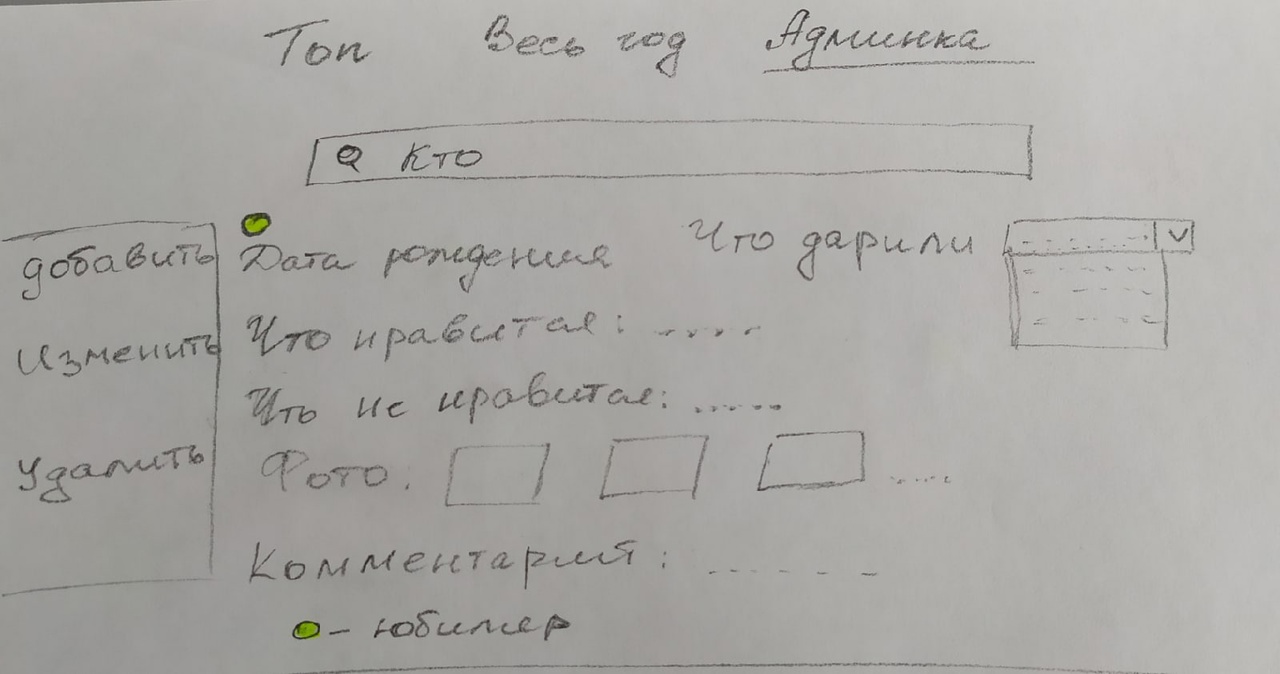 Топ Весь год Админка
Кто
добавить
Изменить
Удалить
Дата рождения Что дарили
Что нравится:
Что не нравится:
Фото:
Комментарий:
- юбиляр